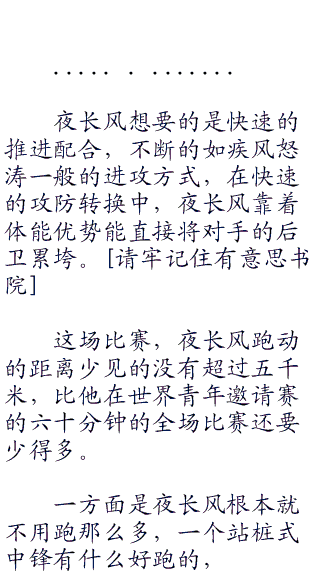 ..... . .......
夜长风想要的是快速的
推进配合，不断的如疾风怒
涛一般的进攻方式，在快速
的攻防转换中，夜长风靠着
体能优势能直接将对手的后
卫累垮。[请牢记住有意思书
院]
这场比赛，夜长风跑动
的距离少见的没有超过五千
米，比他在世界青年邀请赛
的六十分钟的全场比赛还要
少得多。
一方面是夜长风根本就
不用跑那么多，一个站桩式
中锋有什么好跑的，